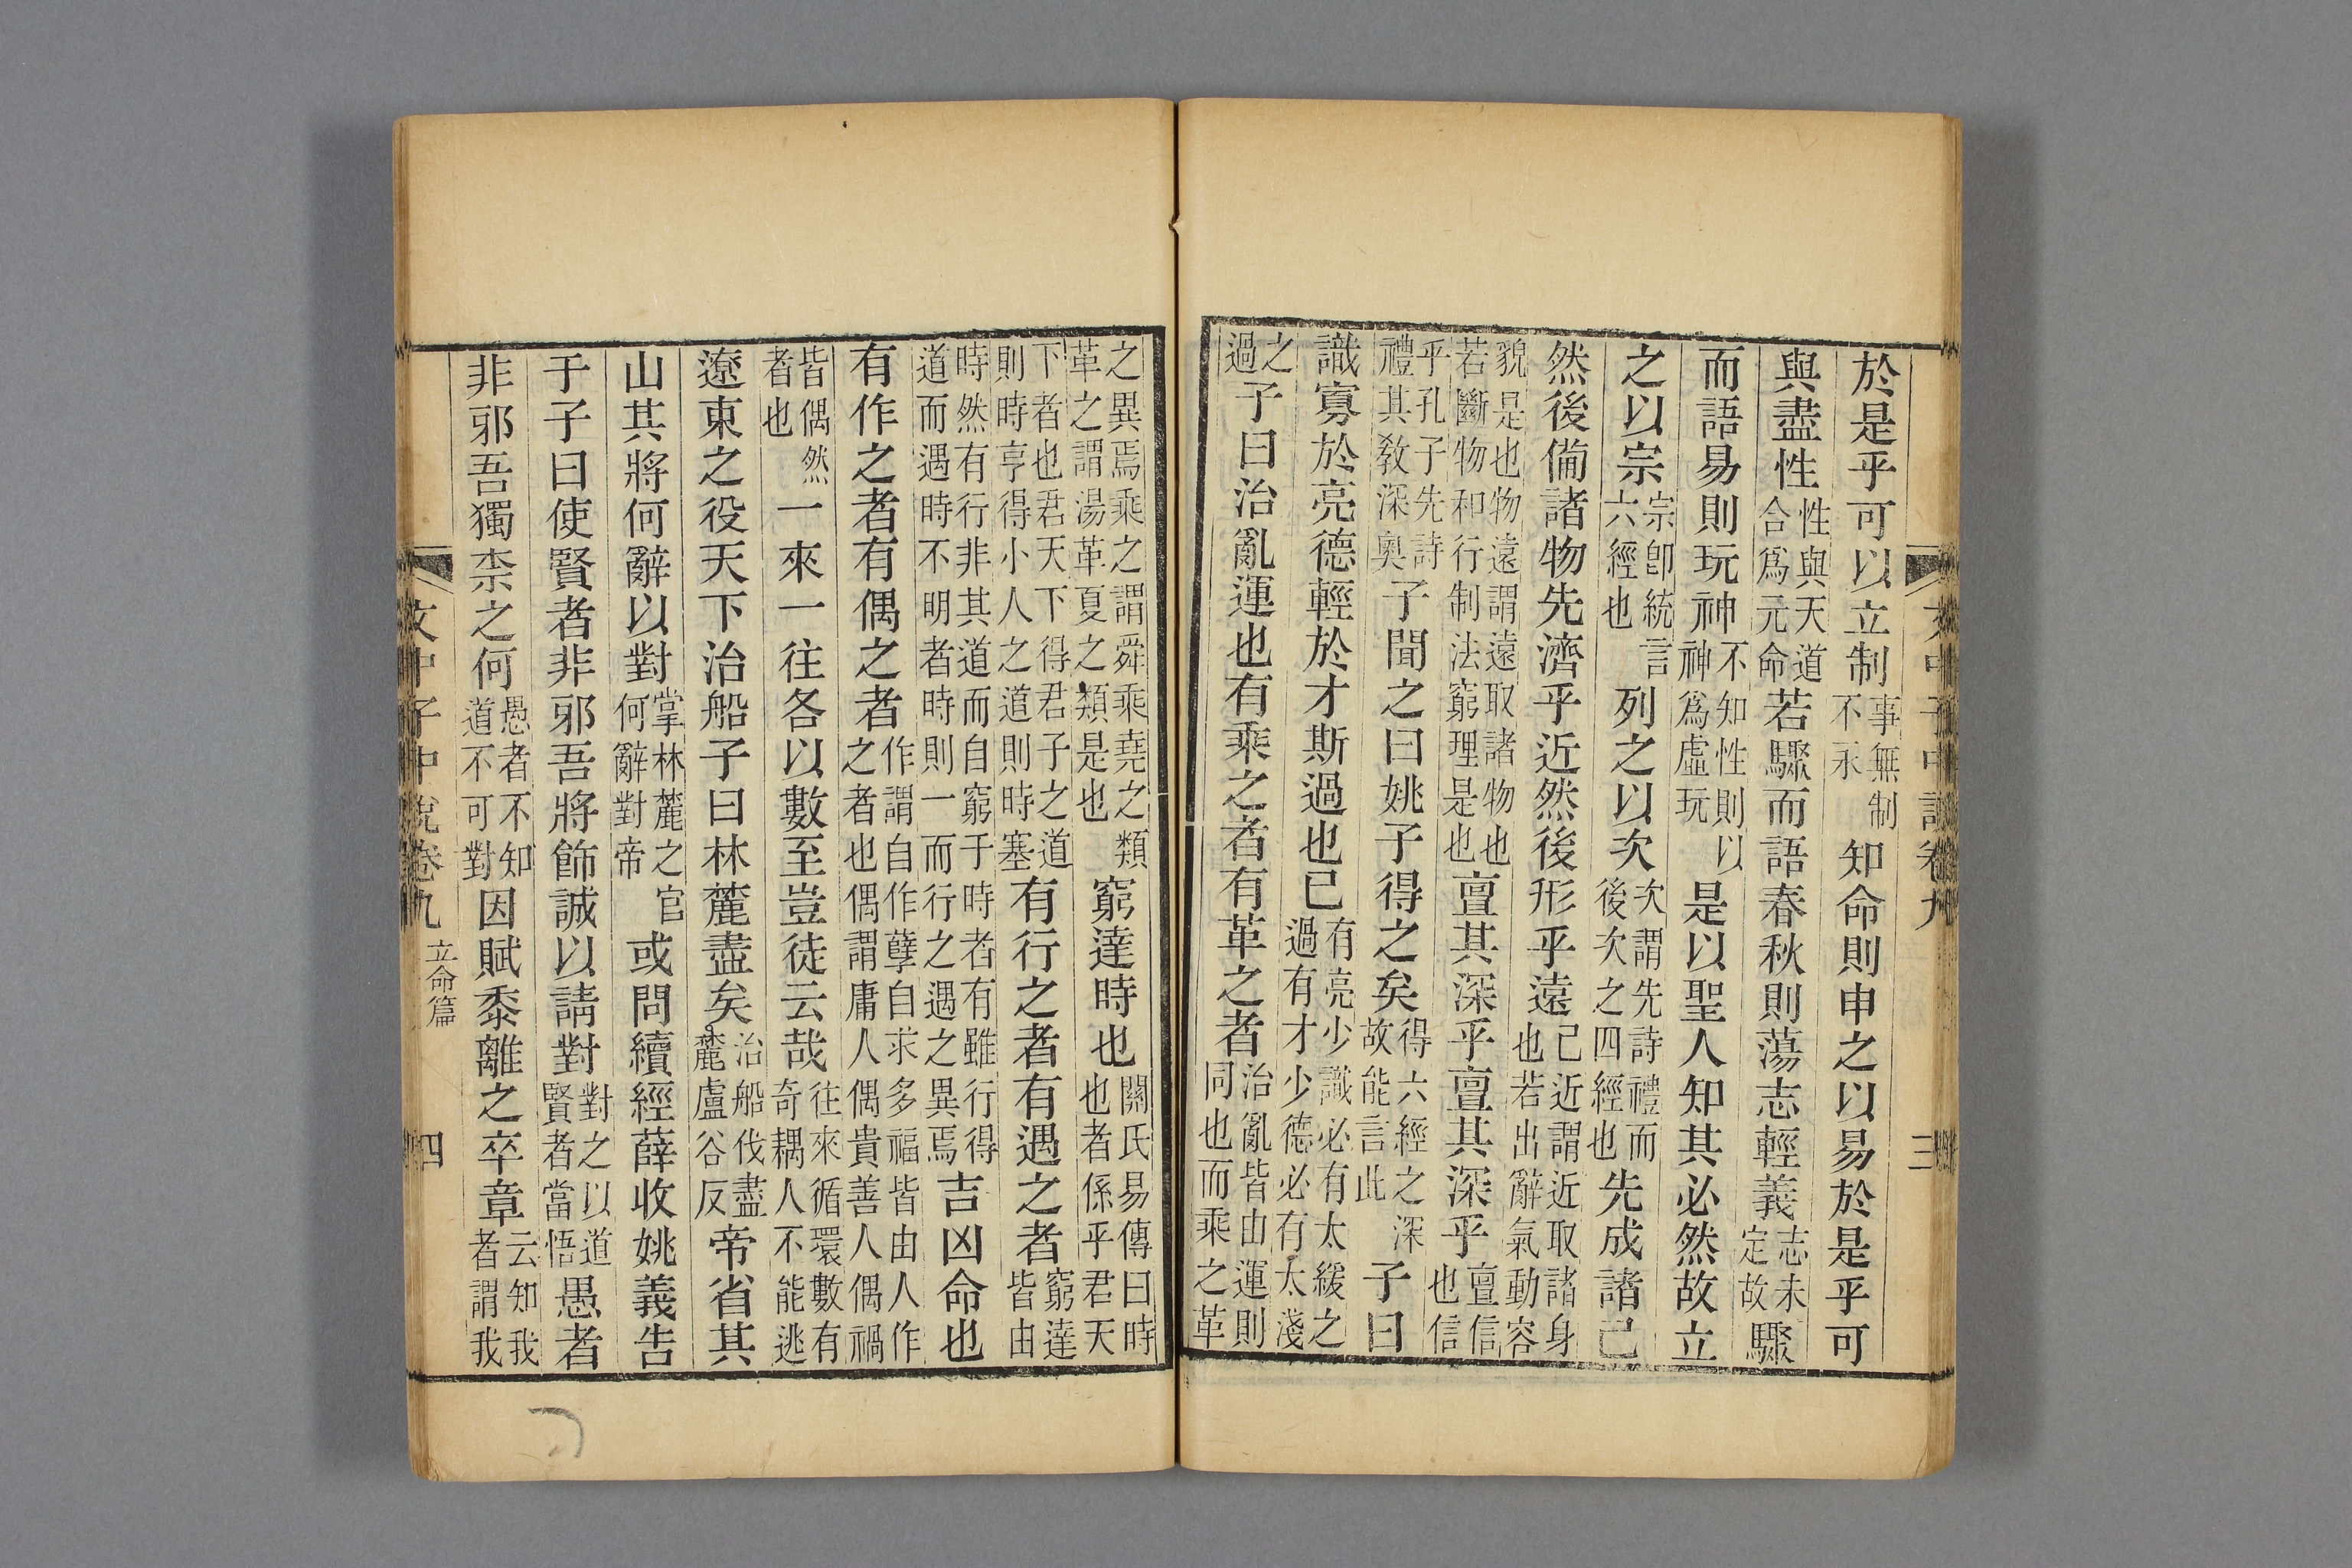 文中子中說卷九 三
於是乎可以立制事無制不承知命則申之以易於是乎可
與盡性性與天道合爲元命若驟而語春秋則蕩志輕義志未定故驟
而語易則玩神不知性則以神爲虛玩是以聖人知其必然故立
之以宗宗卽統言六經也列之以次次謂先詩禮而後次之四經也先成諸己
然後備諸物先濟乎近然後形乎遠己近謂近取諸身也若出辭氣動容
貌是也物遠謂遠取諸物也若斷物和行制法窮理是也亶其深乎亶其深乎亶信也信
乎孔子先詩禮其敎深奧子聞之曰姚子得之矣得六經之深故能言此子曰
識寡於亮德輕於才斯過也已有亮少識必有太緩之過有才少德必有太淺
之過子曰治亂運也有乘之者有革之者治亂皆由運則同也而乘之革
之異焉乘之謂舜乘堯之類革之謂湯革夏之類是也窮達時也關氏易傳曰時也者係乎君天
下者也君天下得君子之道則時亨得小人之道則時塞有行之者有遇之者窮達皆由
時然有行非其道而自窮于時者有雖行得道而遇時不明者時則一而行之遇之異焉吉凶命也
有作之者有偶之者作謂自作孽自求多福皆由人作之者也偶謂庸人偶貴善人偶禍
皆偶然者也一來一往各以數至豈徒云哉往來循環數有奇耦人不能逃
遼東之役天下治船子曰林麓盡矣治船伐盡麓盧谷反帝省其
山其將何辭以對掌林麓之官何辭對帝或問續經薛收姚義告
于子子曰使賢者非邪吾將飾誠以請對對之以道賢者當悟愚者
非邪吾獨柰之何愚者不知道不可對因賦黍離之卒章云知我者謂我
文中子中說卷九 立命篇 四